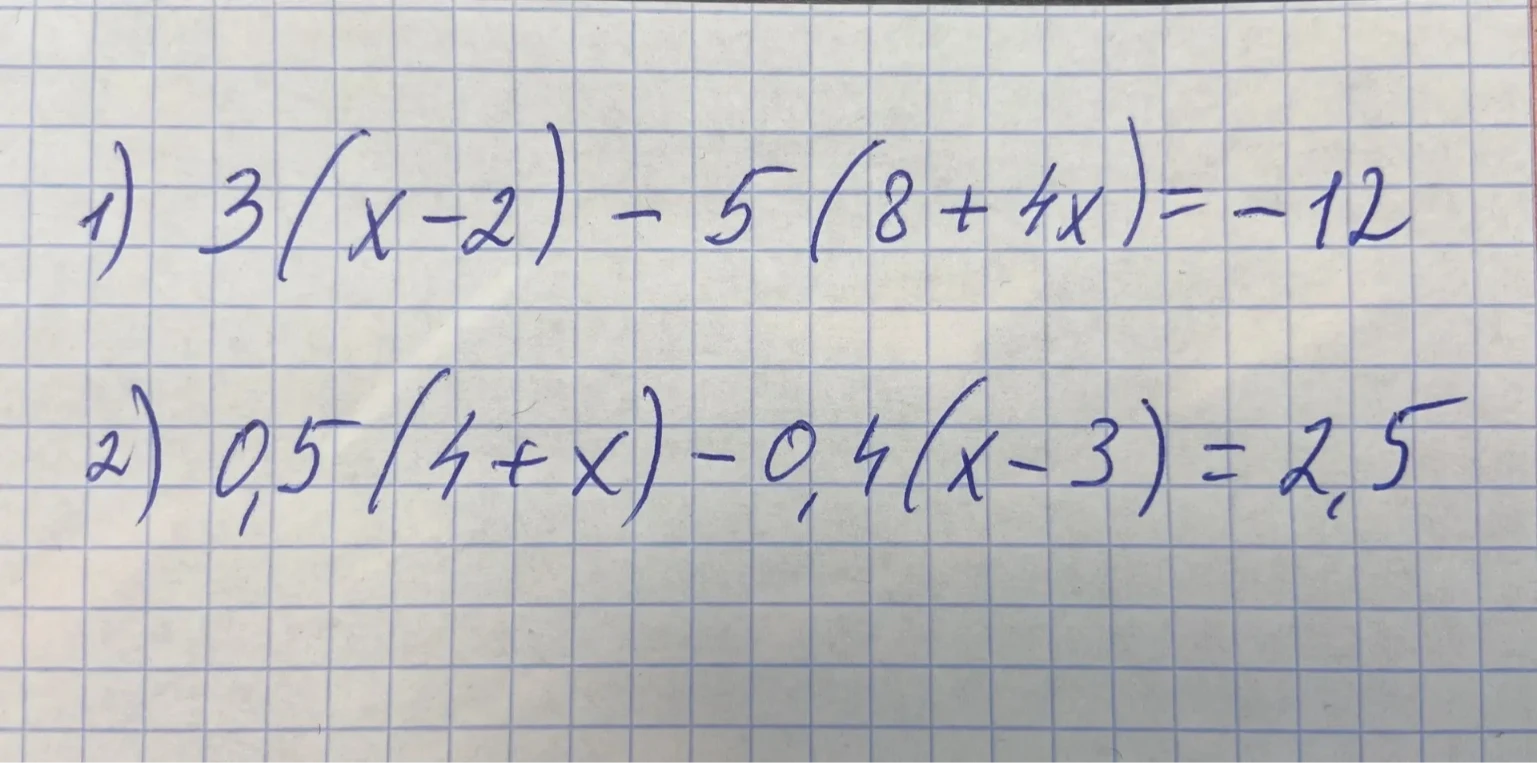 1) 3(x-2) - 5(8+4x)=-12
2) 0,5(4+x)-0,4(x-3)=2,5